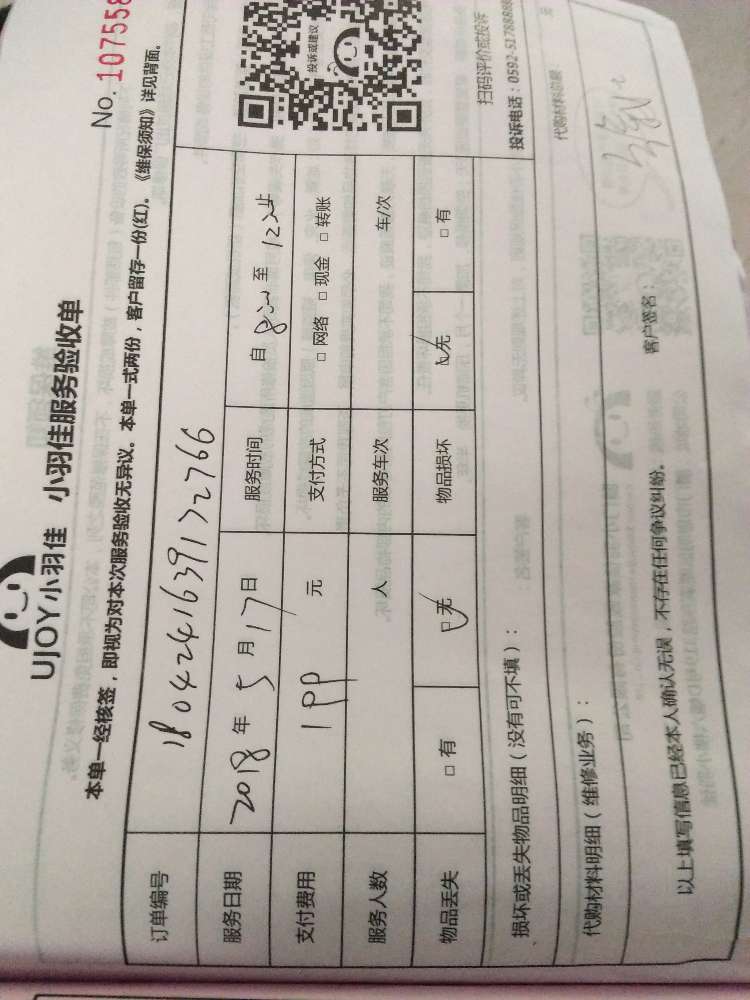 No. 107558
UJOY小羽佳 小羽佳服务验收单
本单一经核签，即视为对本次服务验收无异议。本单一式两份，客户留存一份(红)。《维保须知》详见背面。
订单编号 1804241639172766
服务日期 2018年5月17日 服务时间 自 8:00 至
支付费用 199 元 支付方式 □ 网络 □ 现金 □ 转账
服务人数 人 服务车次 车/次
物品丢失 □ 有 ☑ 无 物品损坏 ☑ 无 □ 有
投诉或建议
扫码评价或投诉
投诉电话：0592-5178888
损坏或丢失物品明细（没有可不填）：
代购材料明细（维修业务）： 代购材料总额 元
以上填写信息已经本人确认无误，不存在任何争议纠纷。 客户签名：